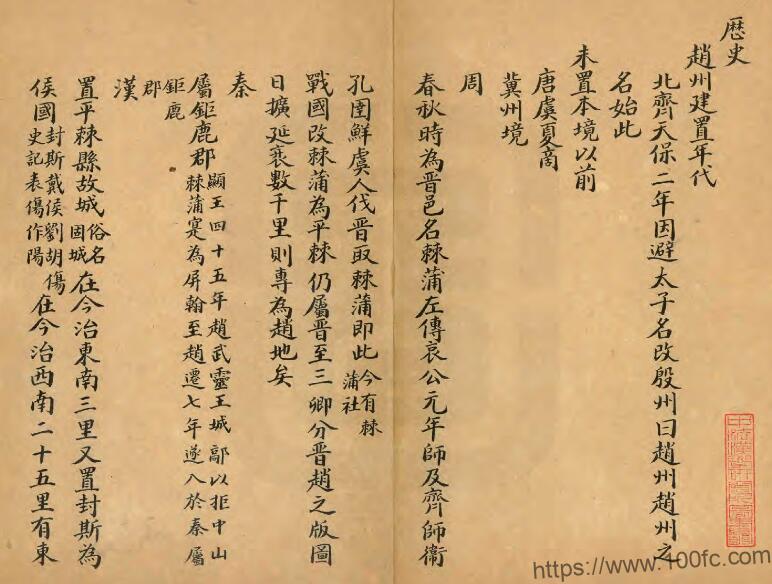 歷史
趙州建置年代
北齊天保二年因避太子名改殷州曰趙州趙州之
名始此
未置本境以前
唐虞夏商
冀州境
周
春秋時為晉邑名棘蒲左傳哀公元年師及齊師衛
孔圉鮮虞人伐晉取棘蒲即此今有棘
蒲社
戰國改棘蒲為平棘仍屬晉至三卿分晉趙之版圖
日擴延袤數千里則專為趙地矣
秦
屬鉅鹿郡顯王四十五年趙武靈王城鄗以拒中山
棘蒲寔為屏翰至趙遷七年遂入於秦屬
鉅鹿
郡
漢
置平棘縣故城俗名
固城在今治東南三里又置封斯為
侯國封斯戴侯劉胡傷
史記表傷作陽在今治西南二十五里有東
https://www.100fc.com